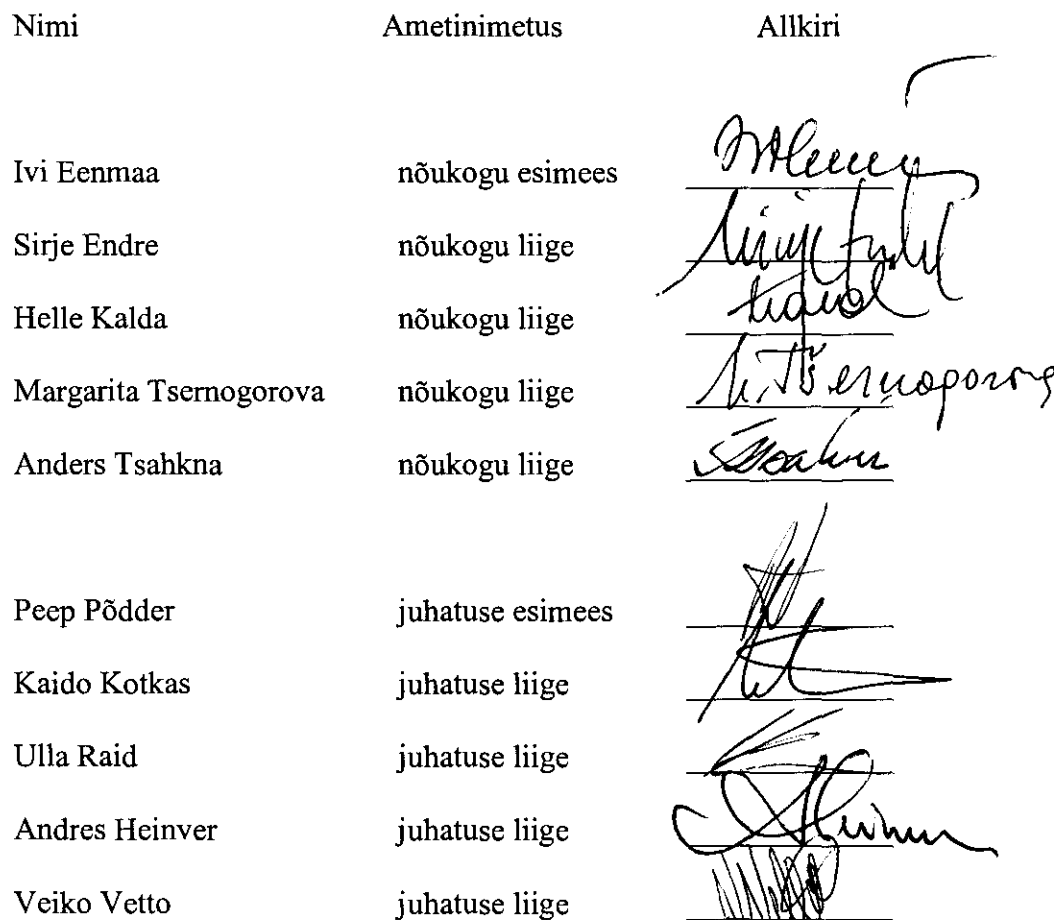 Nimi Ametinimetus Allkiri
Ivi Eenmaa nõukogu esimees
Sirje Endre nõukogu liige
Helle Kalda nõukogu liige
Margarita Tsernogorova nõukogu liige
Anders Tsahkna nõukogu liige
Peep Põdder juhatuse esimees
Kaido Kotkas juhatuse liige
Ulla Raid juhatuse liige
Andres Heinver juhatuse liige
Veiko Vetto juhatuse liige